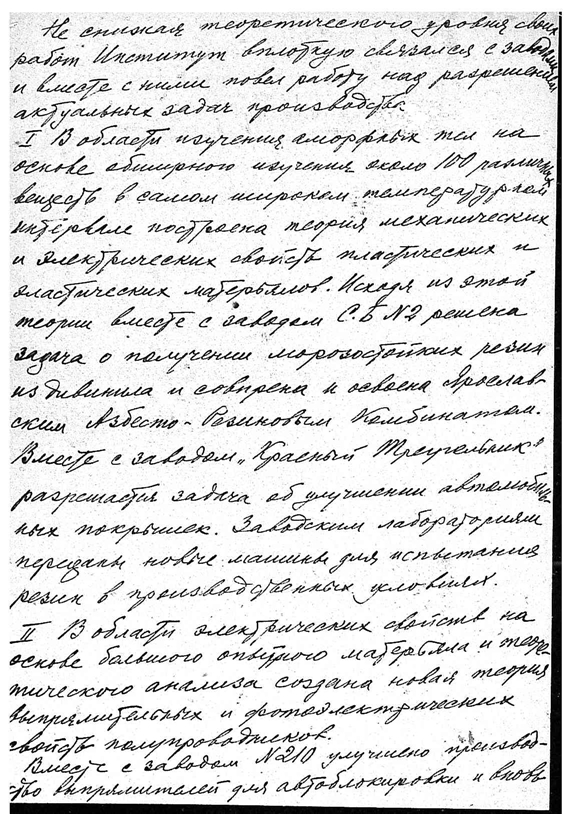 Не снижая теоретического уровня своих
работ Институт вплотную связался с заводами
и вместе с ними повел работу над разрешением
актуальных задач производства.
I В области изучения аморфных тел на
основе обширного изучения около 100 различных
веществ в самом широком температурном
интервале построена теория механических
и электрических свойств пластических и
эластических матерьялов. Исходя из этой
теории вместе с заводом С.Б №2 решена
задача о получении морозостойких резин
из дивинила и совпрена и освоена Ярослав-
ским Азбесто-Резиновым Комбинатом.
Вместе с заводом „Красный Треугольник"
разрешается задача об улучшении автомобиль-
ных покрышек. Заводским лабораториям
переданы новые машины для испытания
резин в производственных условиях.
II В области электрических свойств на
основе большого опытного матерьяла и теоре-
тического анализа создана новая теория
выпрямительных и фотоэлектрических
свойств полупроводников.
Вместе с заводом №210 улучшено производ-
ство выпрямителей для автоблокировки и вновь